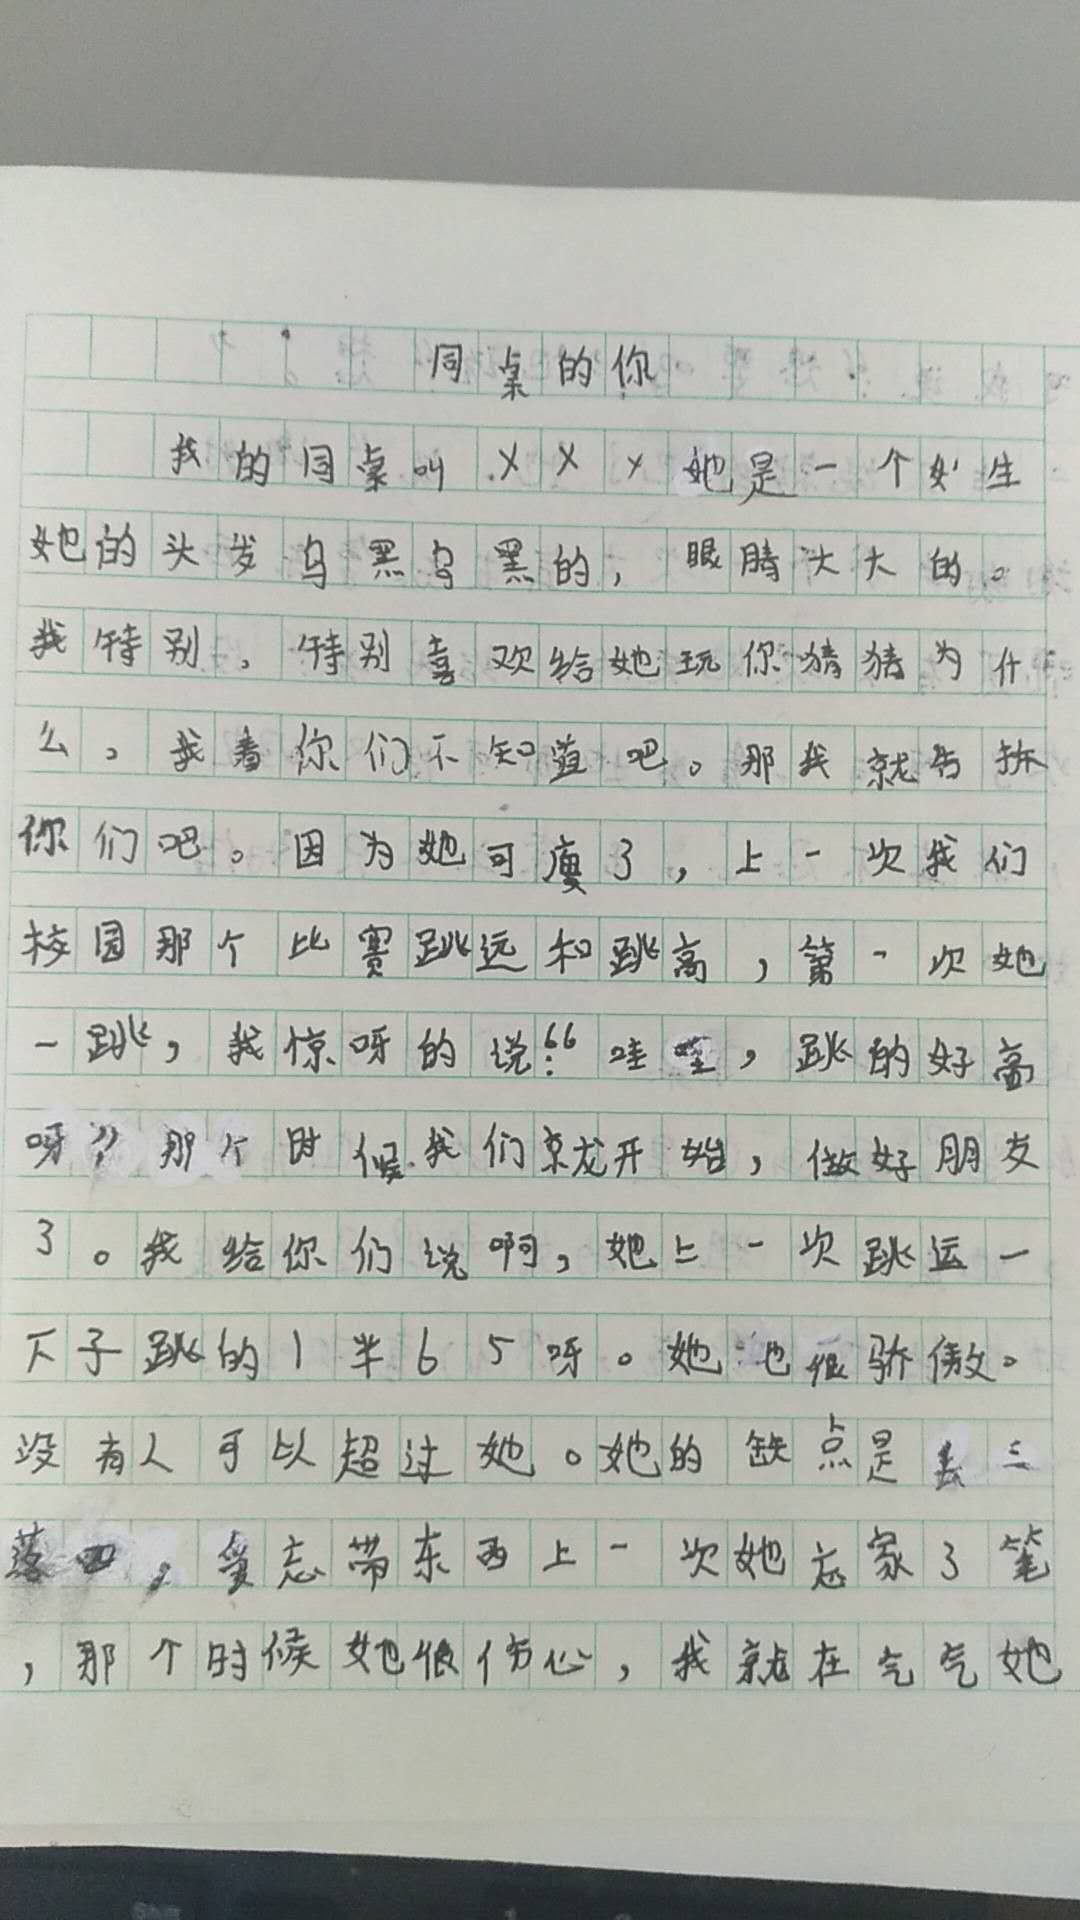 同桌的你
我的同桌叫×××她是一个女生
她的头发乌黑乌黑的,眼睛大大的。
我特别,特别喜欢给她玩你猜猜为什
么。我看你们不知道吧。那我就告拆
你们吧。因为她可瘦了,上一次我们
校园那个比赛跳远和跳高,第一次她
一跳,我惊呀的说:“哇哇,跳的好高
呀”那个时候我们就开始,做好朋友
了。我给你们说啊,她上一次跳远一
下子跳的1米65呀。她也很骄傲。
没有人可以超过她。她的缺点是丢三
落四,爱忘带东西上一次她忘家了笔
,那个时候她很伤心,我就在气气她